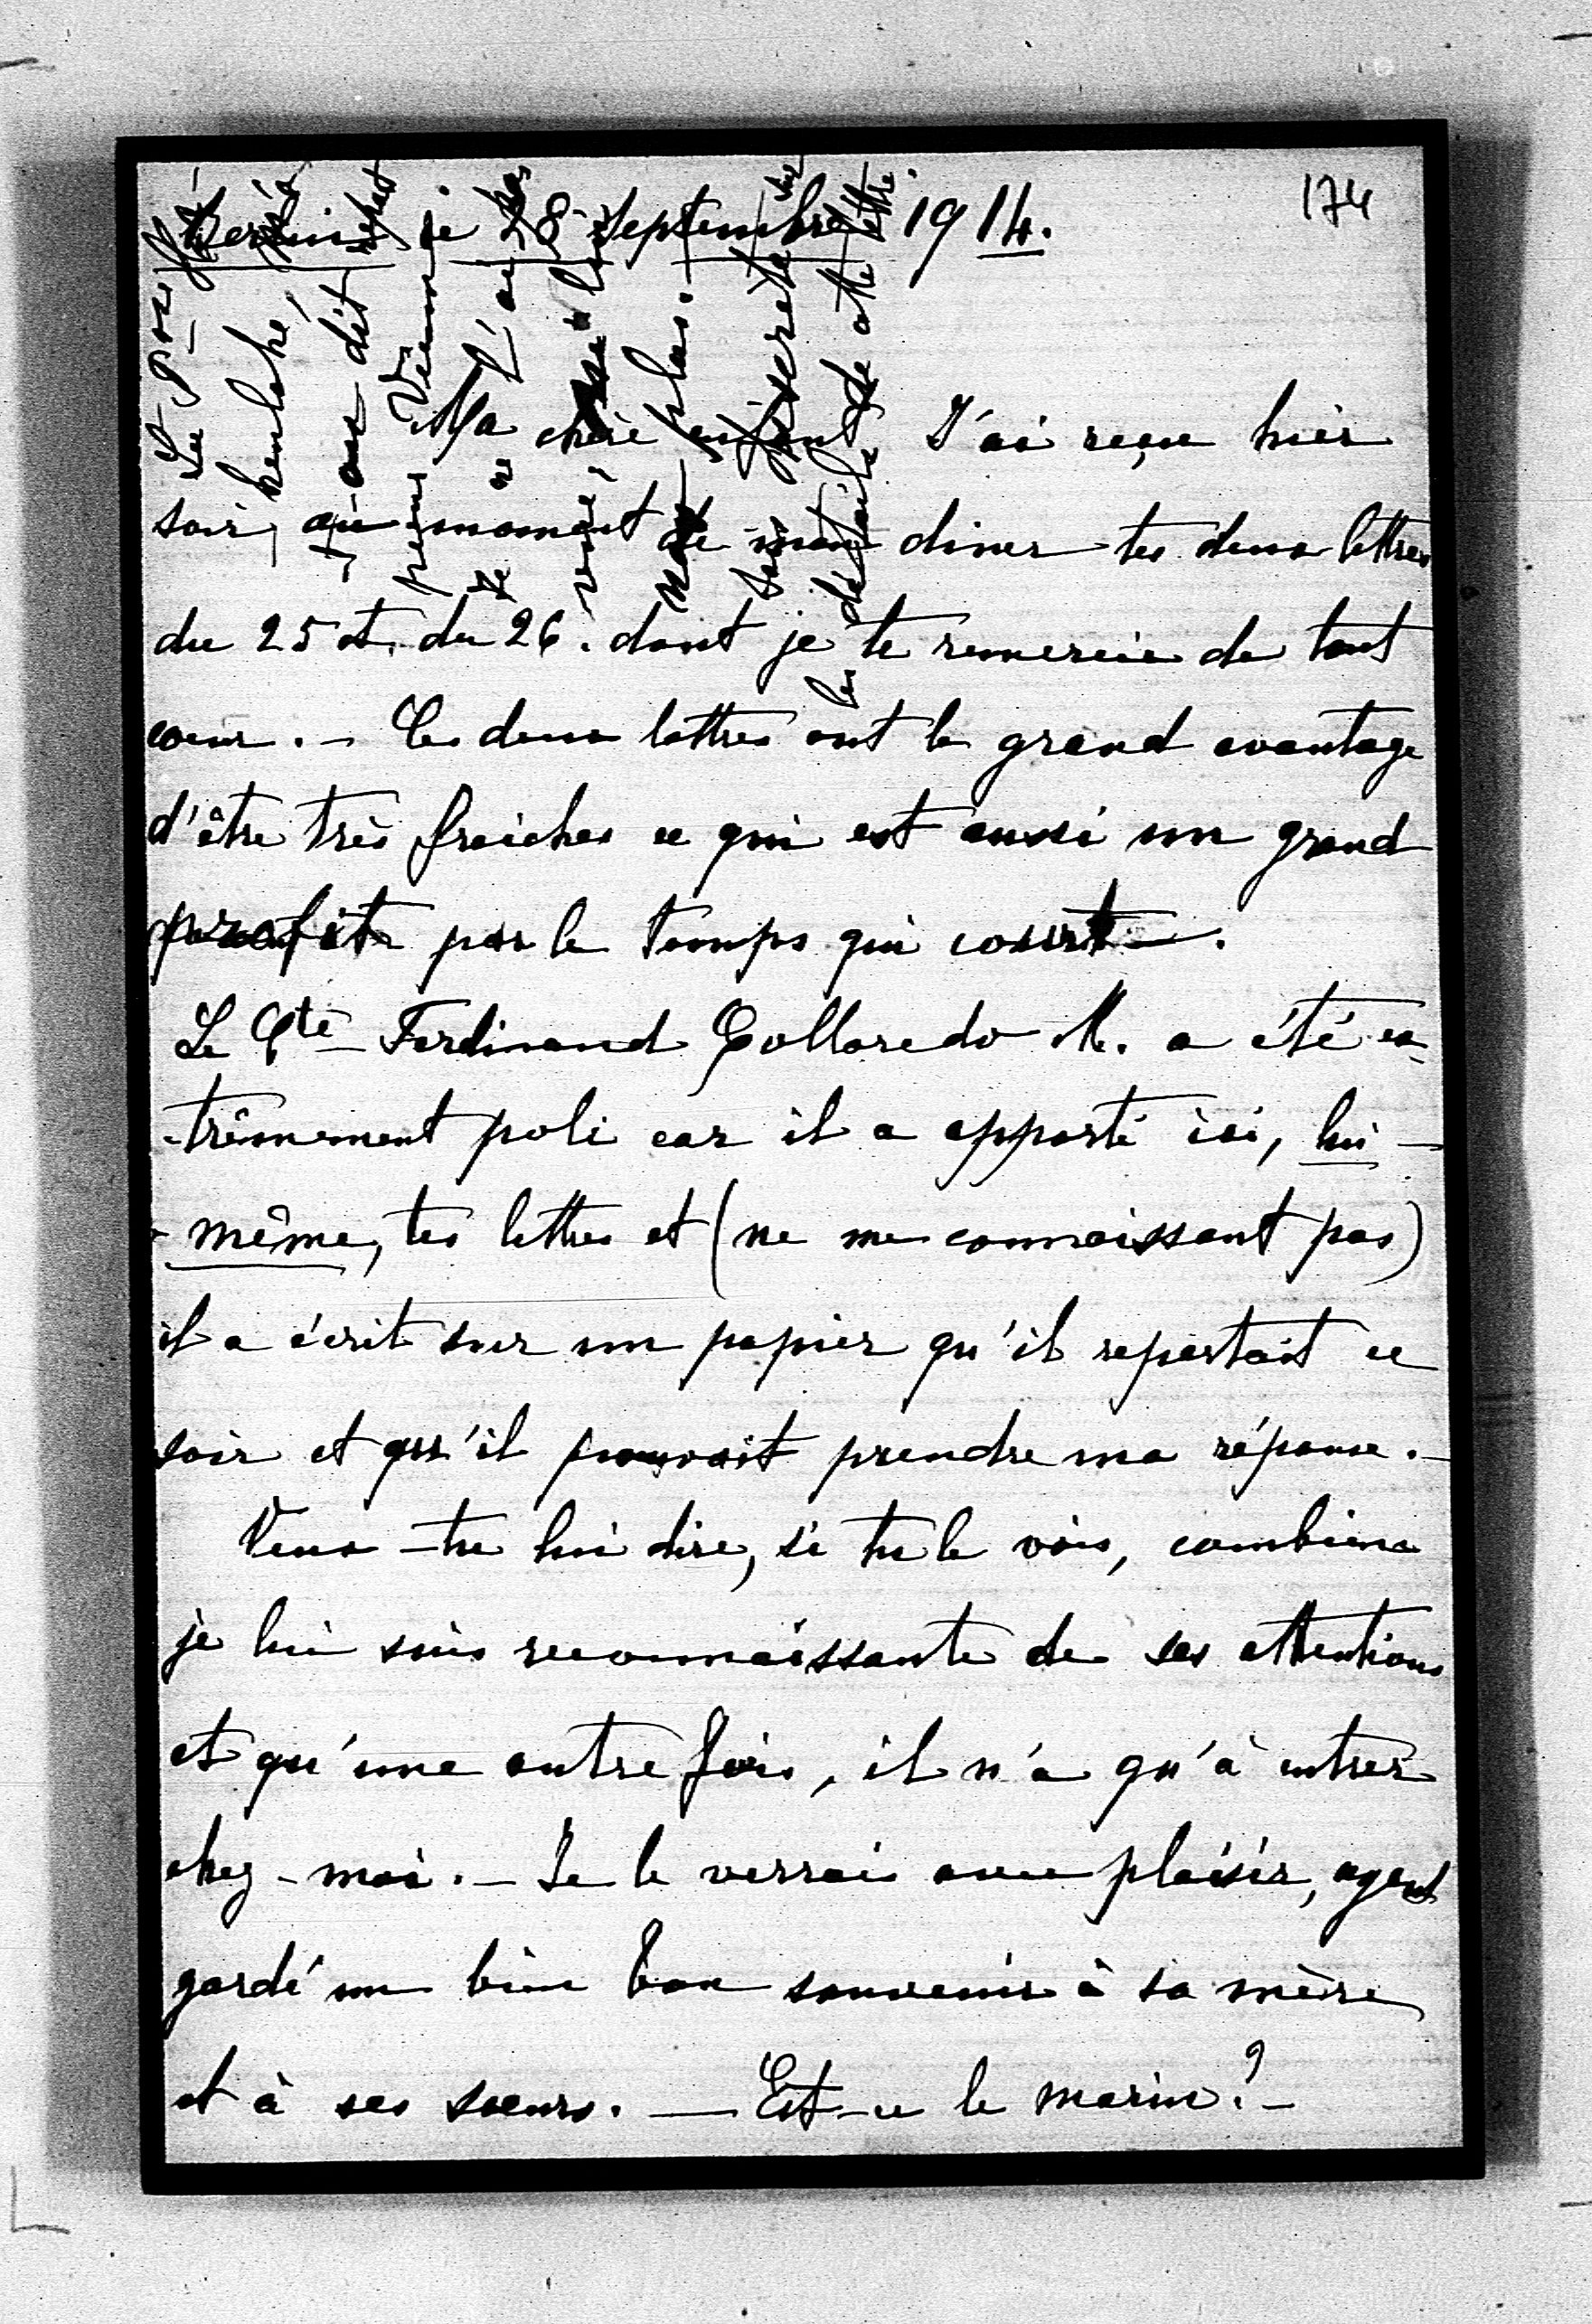 174
Berlin, le 28 Septembre 1914.
Ma chère enfant J'ai reçu hier
soir, au moment de mon diner tes deux lettres
du 25 et du 26. dont je te remercie de tout
coeur. - Ces deux lettres ont le grand avantage
d'être très fraiches ce qui est aussi un grand
profit par le temps qui court.
Le Cte Ferdinand Colloredo M. a été ex-
-trêmement poli car il a apporté ici, lui-
-même, tes lettres et (ne me connaissant pas)
il a écrit sur un papier qu'il repartait ce
soir et qu'il pouvait prendre ma réponse. -
Veux-tu lui dire, si tu le vois, combien
je lui suis reconnaissante de ses attentions
et qu'une autre fois, il n'a qu'à entrer
chez-moi. - Je le verrai avec plaisir, ayant
gardé un bien bon souvenir à sa mère
et à ses soeurs. — Est-ce le marin? -
Vienne
plus.
les détails de cette lettre.